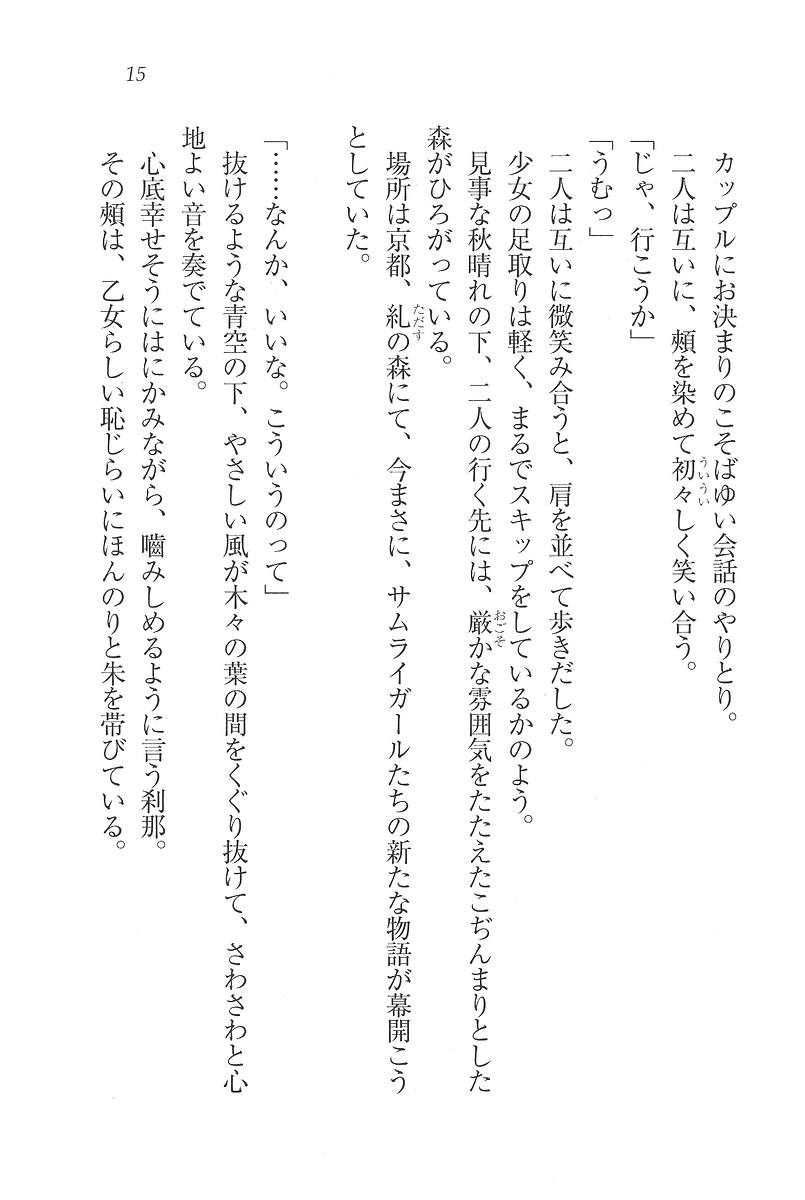 15
カップルにお決まりのこそばゆい会話のやりとり。
二人は互いに、頰を染めて初々しく笑い合う。
「じゃ、行こうか」
「うむっ」
二人は互いに微笑み合うと、肩を並べて歩きだした。
少女の足取りは軽く、まるでスキップをしているかのよう。
見事な秋晴れの下、二人の行く先には、厳かな雰囲気をたたえたこぢんまりとした
森がひろがっている。
場所は京都、糺の森にて、今まさに、サムライガールたちの新たな物語が幕開こう
としていた。
「……なんか、いいな。こういうのって」
抜けるような青空の下、やさしい風が木々の葉の間をくぐり抜けて、さわさわと心
地よい音を奏でている。
心底幸せそうにはにかみながら、嚙みしめるように言う刹那。
その頰は、乙女らしい恥じらいにほんのりと朱を帯びている。
ういうい
おごそ
ただす